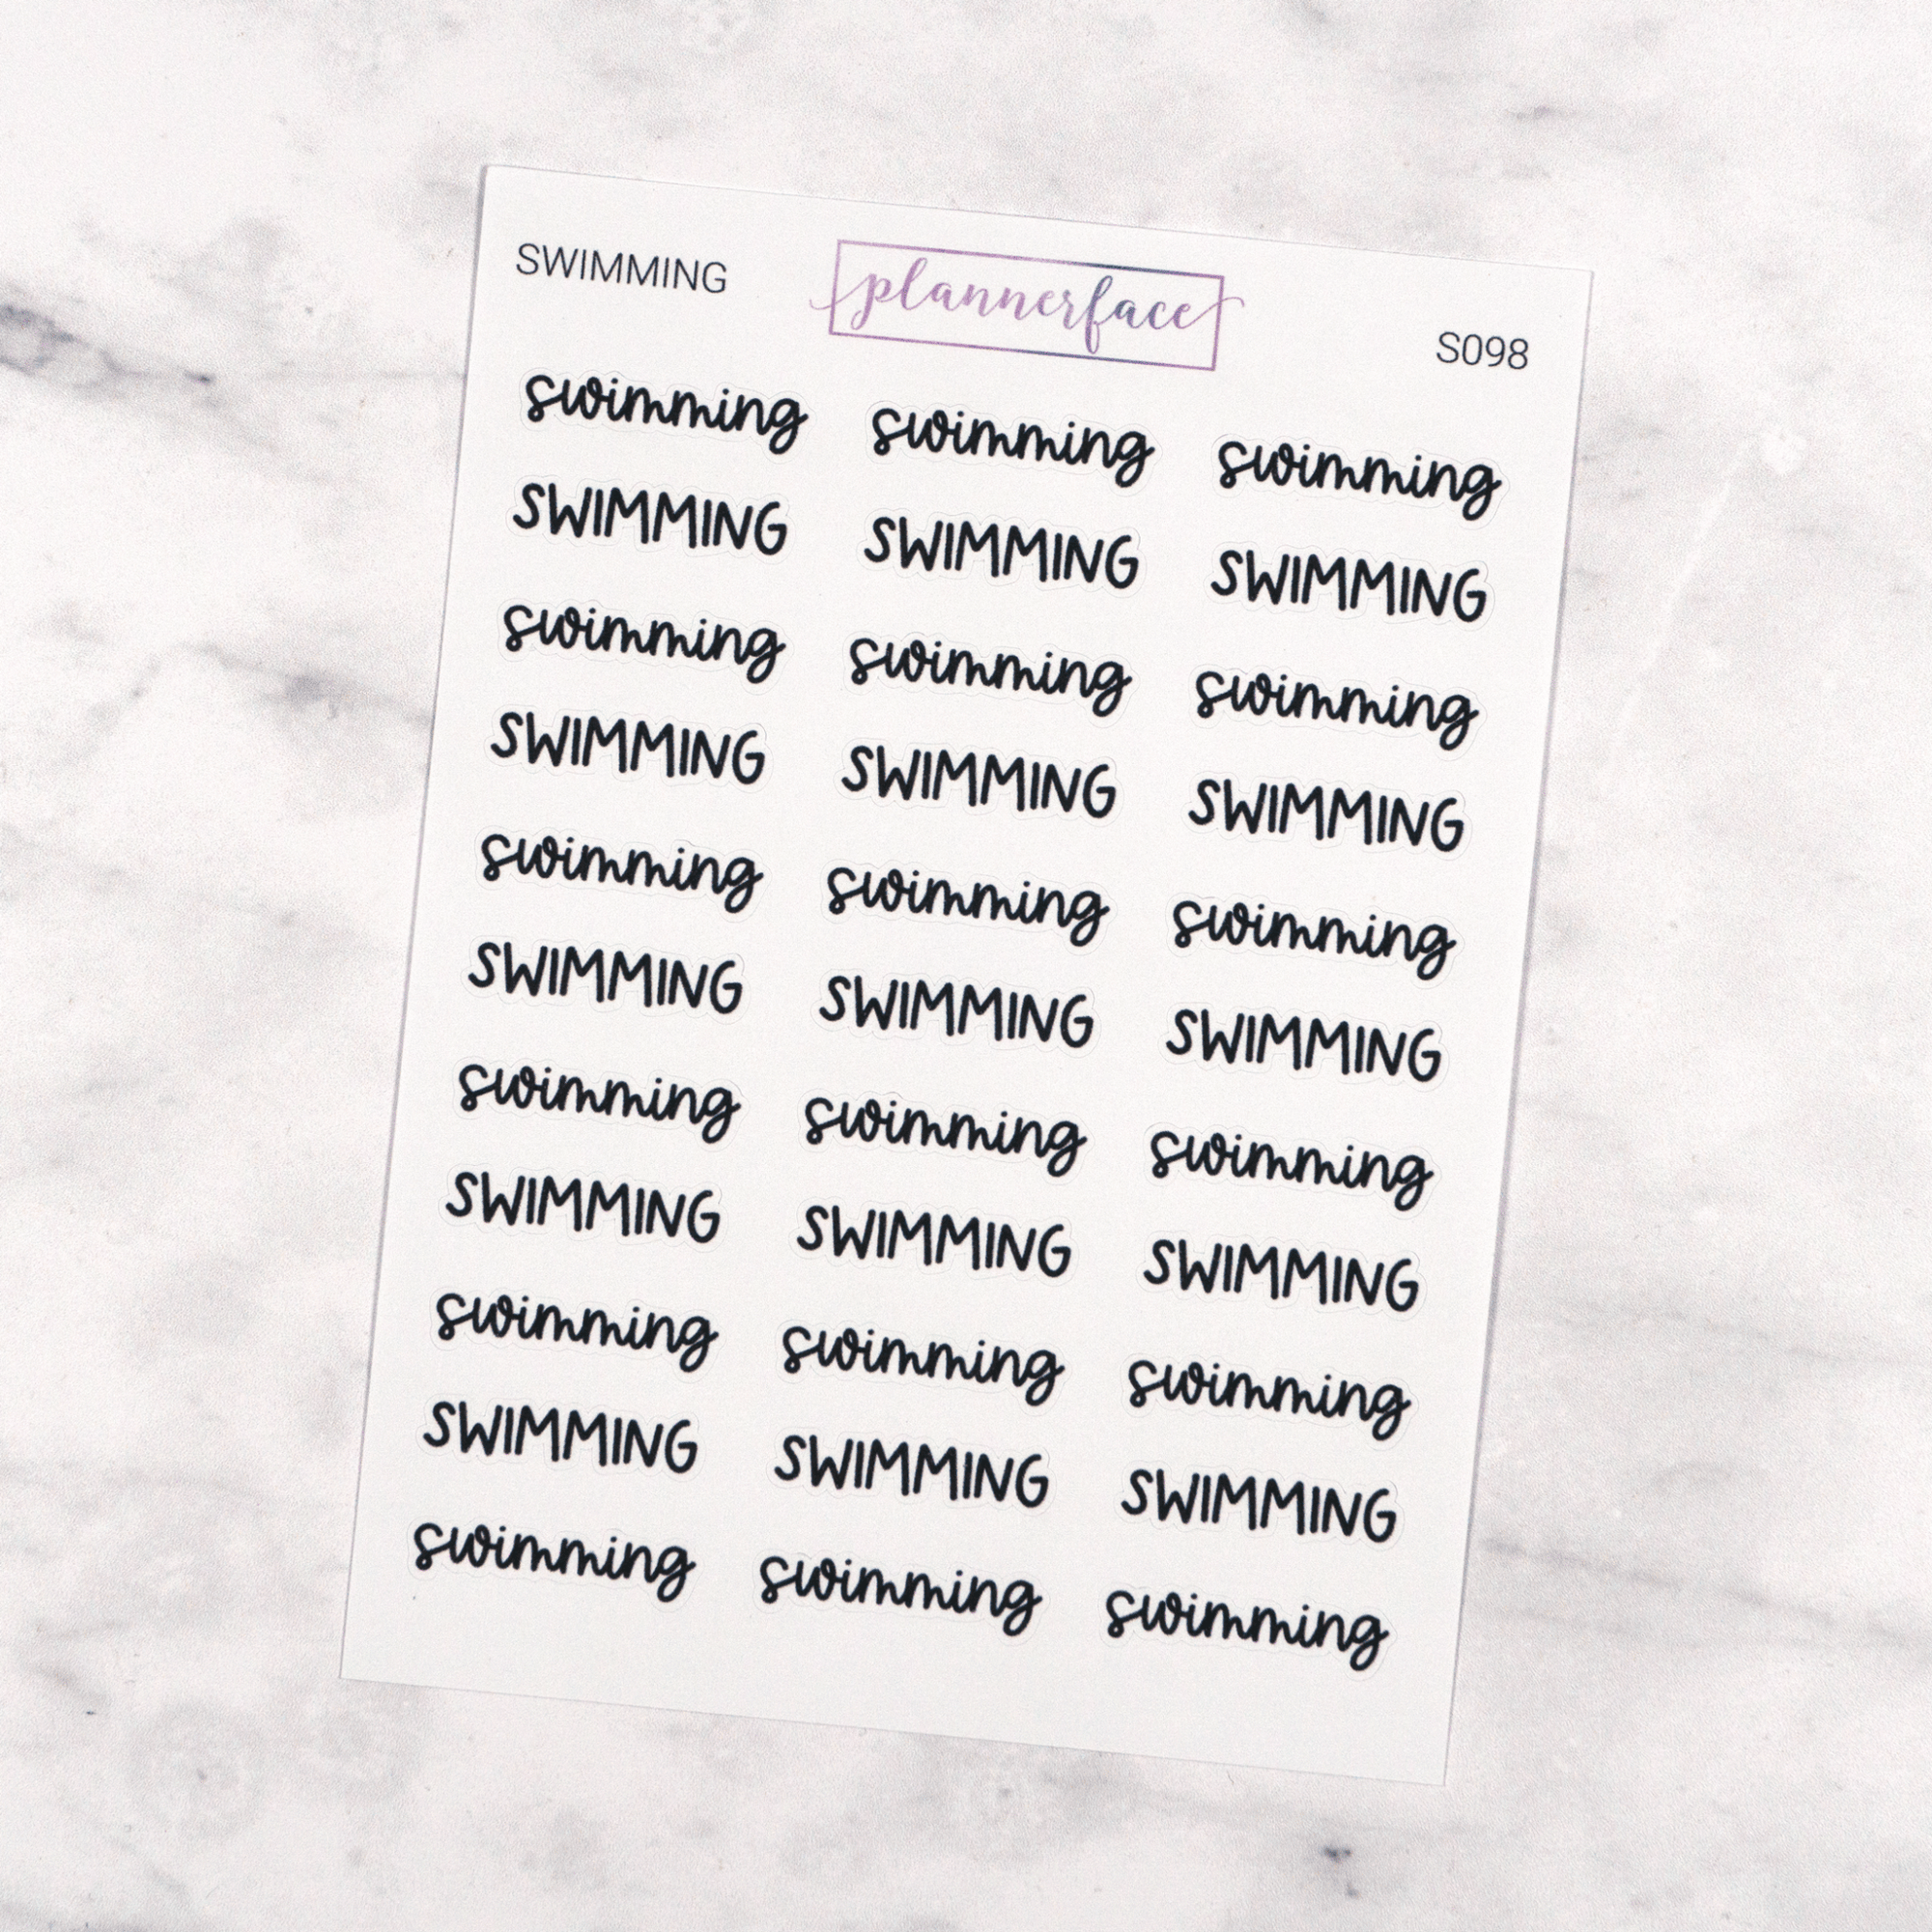 SWIMMING plannerface S098
swimming swimming swimming
SWIMMING SWIMMING SWIMMING
swimming swimming swimming
SWIMMING SWIMMING SWIMMING
swimming swimming swimming
SWIMMING SWIMMING SWIMMING
swimming swimming swimming
SWIMMING SWIMMING SWIMMING
swimming swimming swimming
SWIMMING SWIMMING SWIMMING
swimming swimming swimming